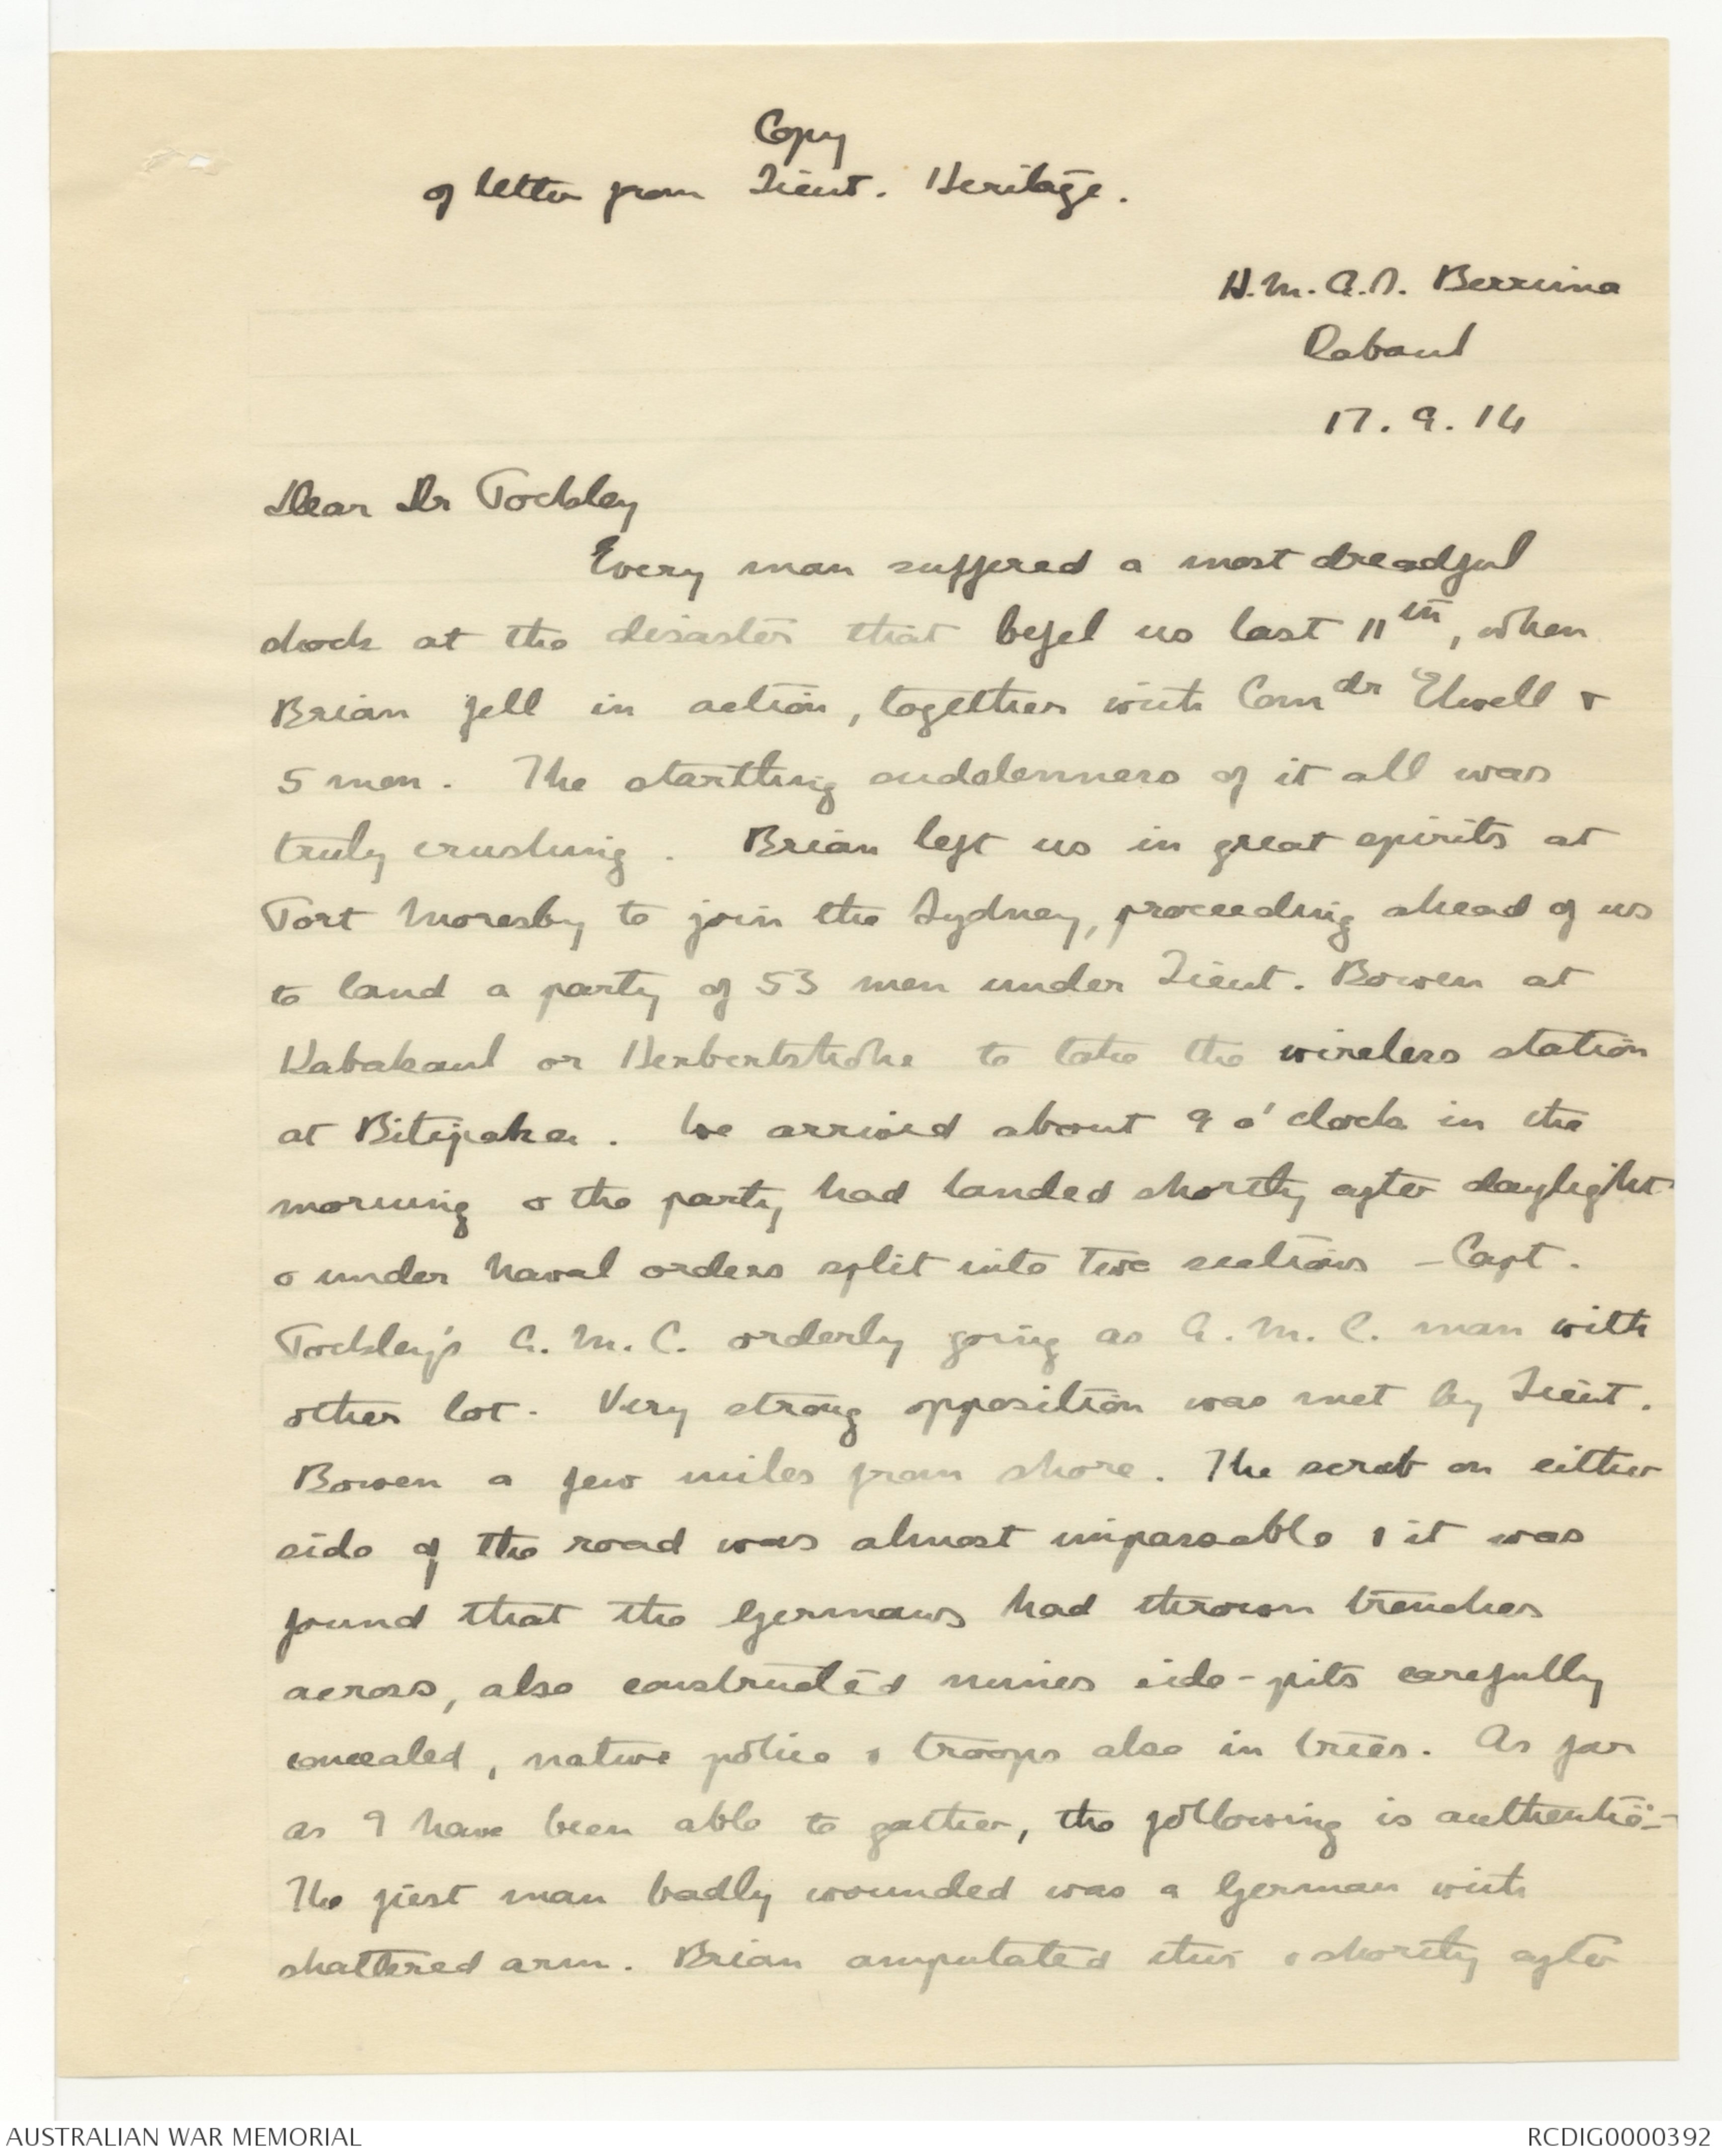 Copy
of letter from Lieut. Heritage.
H.M.A.S. Berrima
Rabaul
17.9.14
Dear Dr Pockley
Every man suffered a most dreadful
shock at the disaster that befel us last 11th, when
Brian fell in action, together with Comdr Elwell &
5 men. The startling suddenness of it all was
truly crushing. Brian left us in great spirits at
Port Moresby to join the Sydney, proceeding ahead of us
to land a party of 53 men under Lieut. Bowen at
Kabakaul or Herbertshohe to take the wireless station
at Bitapaka. We arrived about 9 o'clock in the
morning & the party had landed shortly after daylight
& under naval orders split into two sections - Capt.
Pockley's A.M.C. orderly going as A.M.C. man with
other lot. Very strong opposition was met by Lieut.
Bowen a few miles from shore. The scrub on either
side of the road was almost impassable & it was
found that the Germans had thrown trenches
across, also constructed mines side-pits carefully
concealed, native police & troops also in trees. As far
as I have been able to gather, the following is authentic:-
The first man badly wounded was a German with
shattered arm. Brian amputated this & shortly after
AUSTRALIAN WAR MEMORIAL
RCDIG0000392